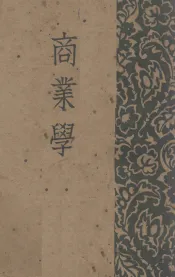 商業學